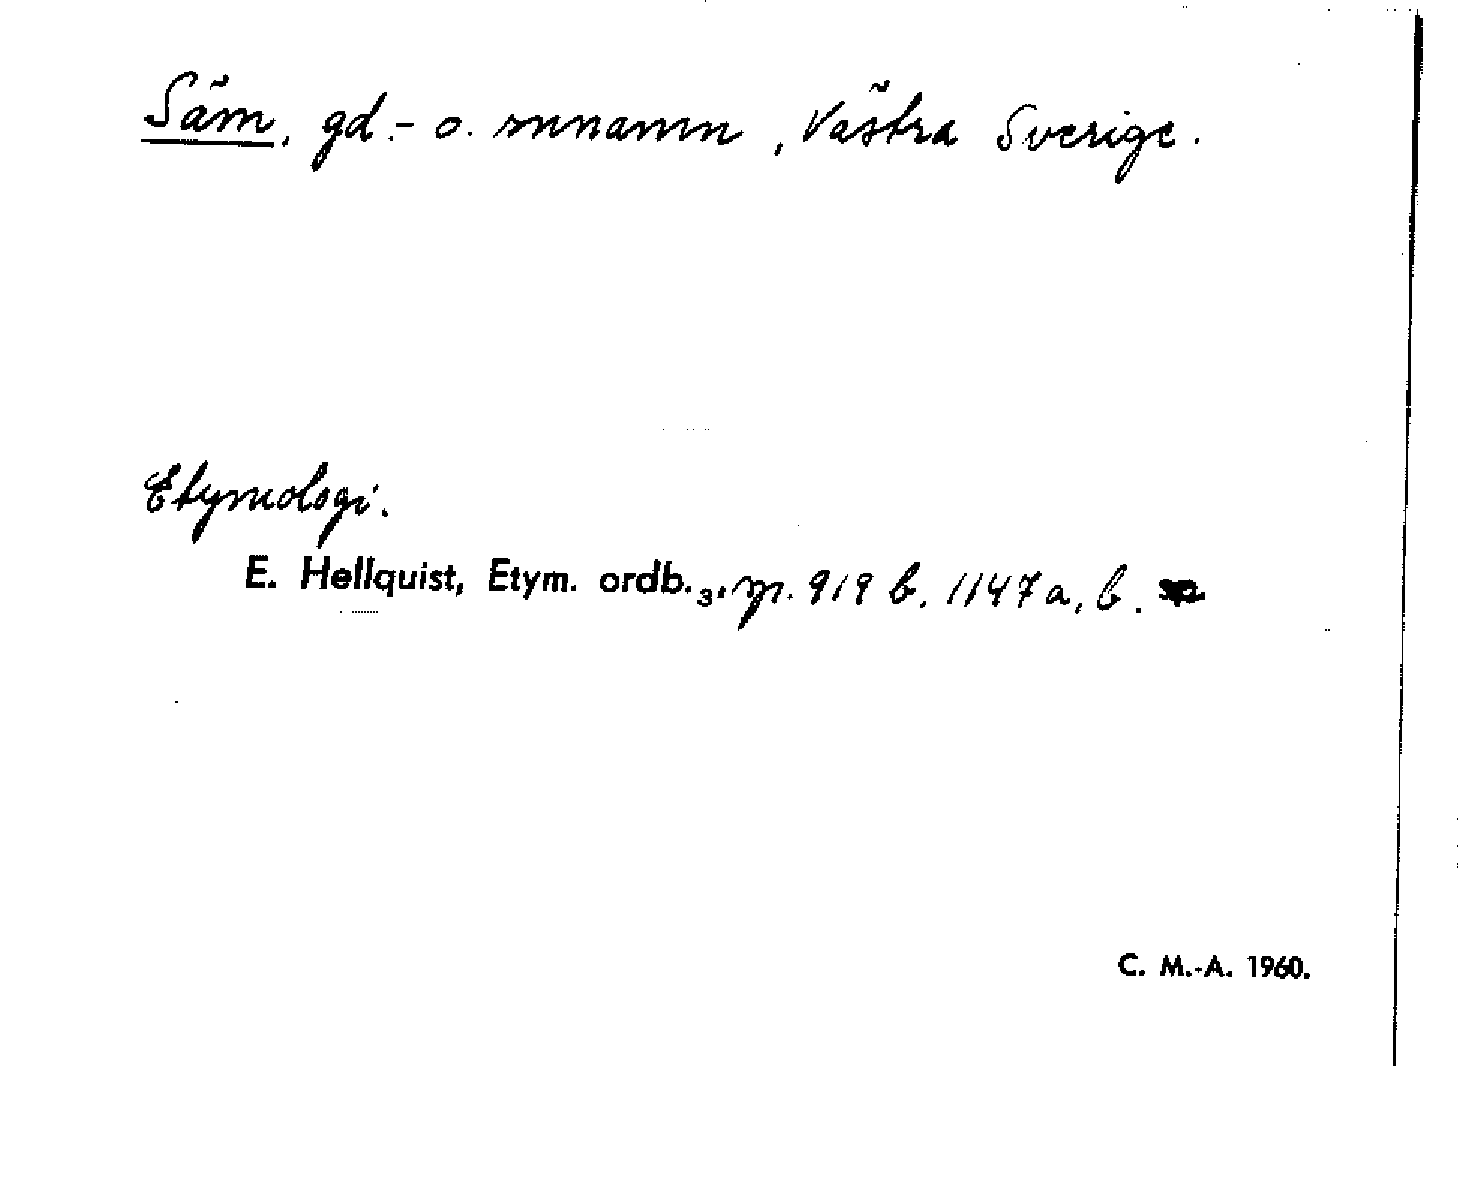 Säm, gd.- o. snnamn, Västra Sverige.
Etymologi.
E. Hellquist, Etym. ordb.₃, sp. 919 b, 1147 a, b.
C. M.-A. 1960.